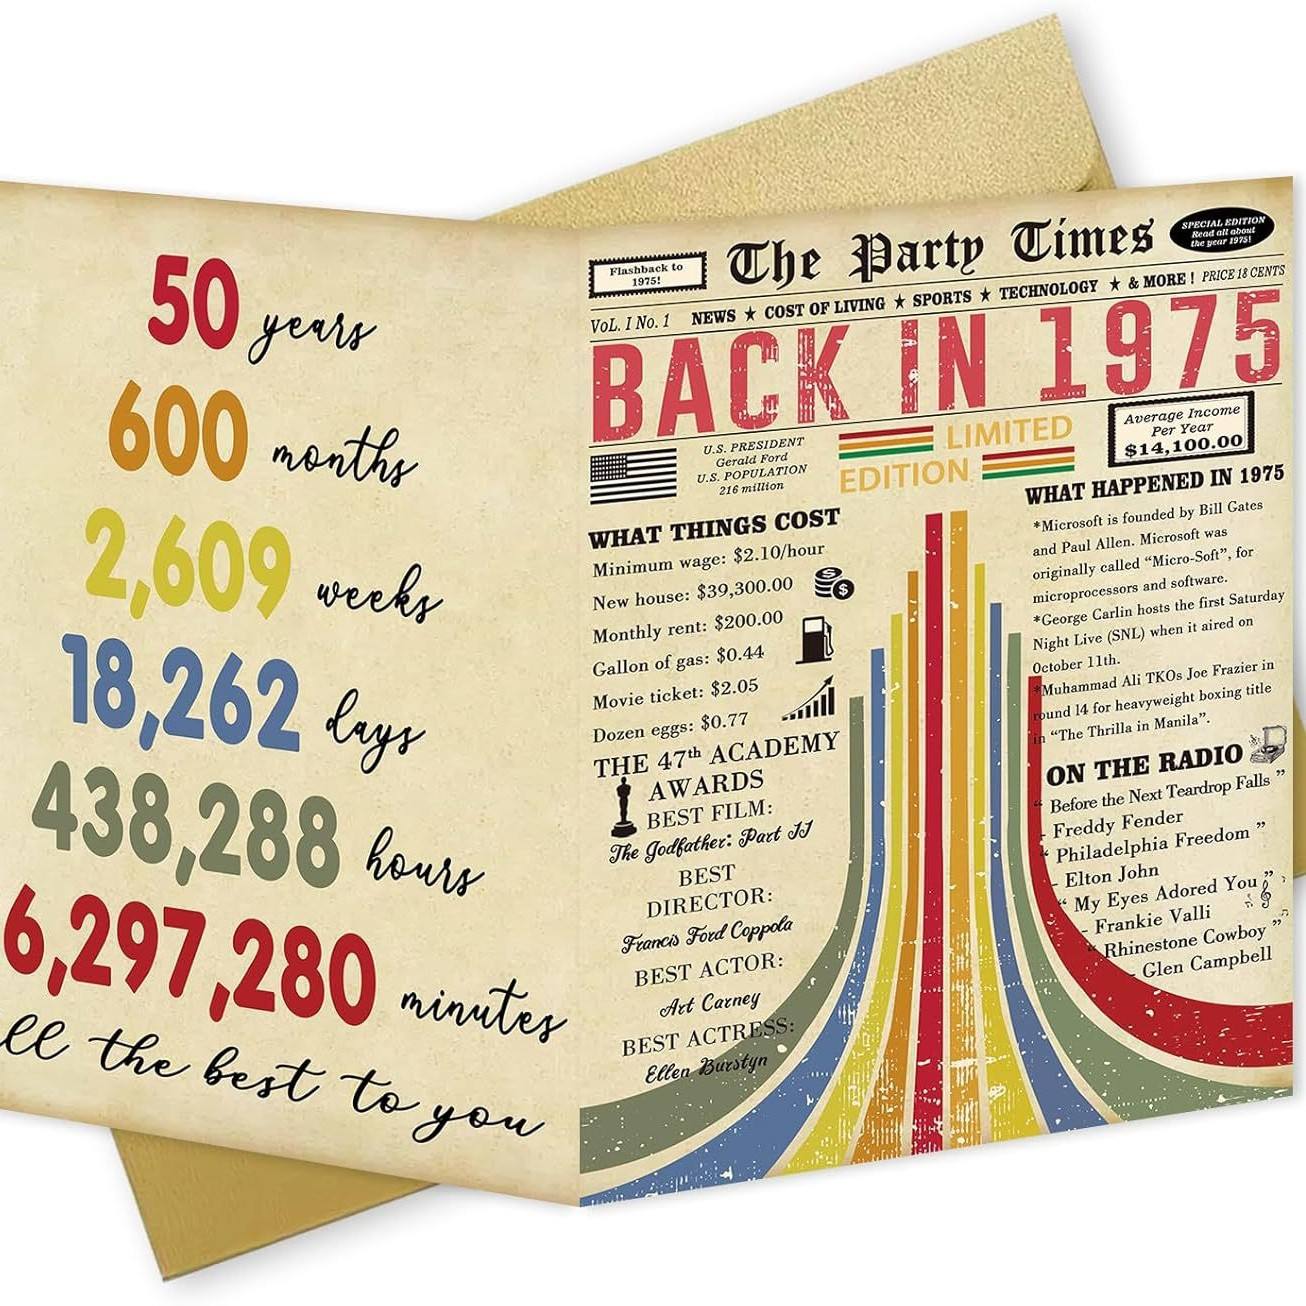 50 years
600 months
2,609 weeks
18,262 days
438,288 hours
6,297,280 minutes
ll the best to you
Flashback to
1975!
The Party Times
SPECIAL EDITION
Read all about
the year 1975!
VoL. I No. 1 NEWS ★ COST OF LIVING ★ SPORTS ★ TECHNOLOGY ★ & MORE! PRICE 18 CENTS
BACK IN 1975
U.S. PRESIDENT
Gerald Ford
U.S. POPULATION
216 million
LIMITED
EDITION
Average Income
Per Year
$14,100.00
WHAT THINGS COST
Minimum wage: $2.10/hour
New house: $39,300.00
Monthly rent: $200.00
Gallon of gas: $0.44
Movie ticket: $2.05
Dozen eggs: $0.77
THE 47th ACADEMY
AWARDS
BEST FILM:
The Godfather: Part II
BEST
DIRECTOR:
Francis Ford Coppola
BEST ACTOR:
Art Carney
BEST ACTRESS:
Ellen Burstyn
WHAT HAPPENED IN 1975
*Microsoft is founded by Bill Gates
and Paul Allen. Microsoft was
originally called “Micro-Soft”, for
microprocessors and software.
*George Carlin hosts the first Saturday
Night Live (SNL) when it aired on
October 11th.
*Muhammad Ali TKOs Joe Frazier in
round 14 for heavyweight boxing title
in “The Thrilla in Manila”.
ON THE RADIO
“ Before the Next Teardrop Falls ”
- Freddy Fender
“ Philadelphia Freedom ”
- Elton John
“ My Eyes Adored You ”
- Frankie Valli
“ Rhinestone Cowboy ”
- Glen Campbell